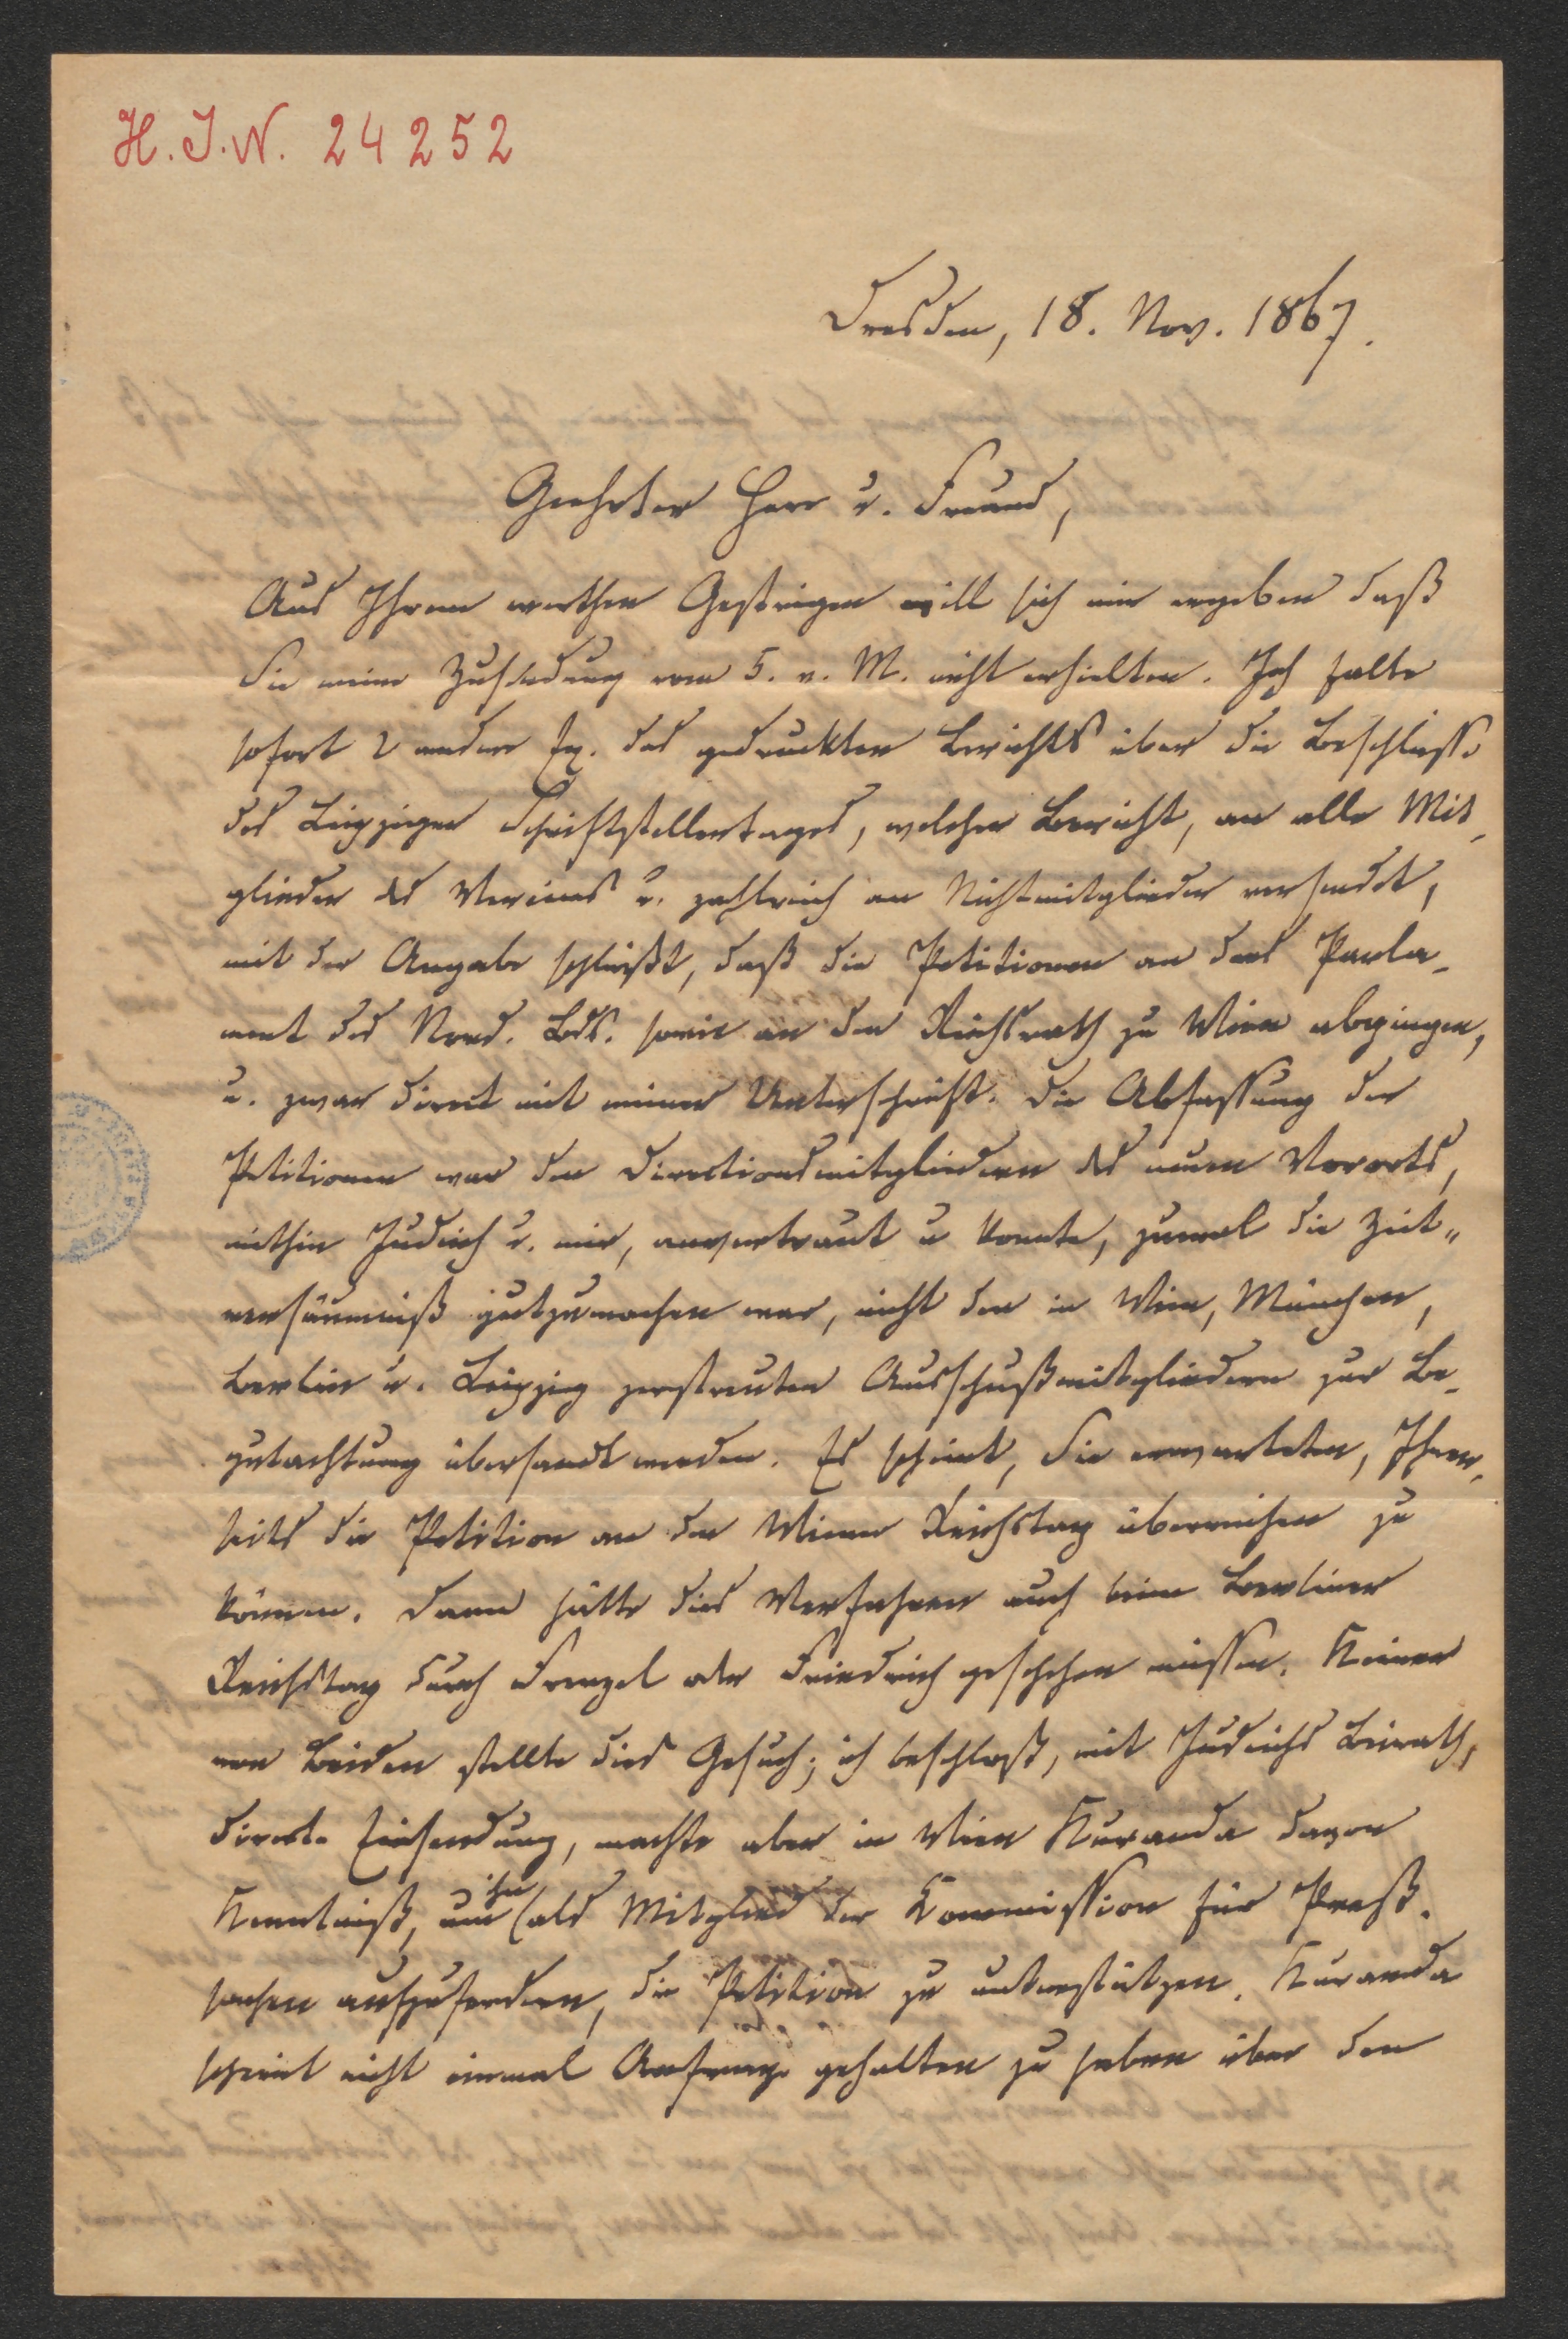 H. J. N. 24252
Dresden, 18. Nov. 1867.
Geehrter Herr u. Freund,
Aus Ihrem werthen Gestrigen will sich mir ergeben daß
Sie meine Zusendung vom 5. v. M. nicht erhielten. Ich falte
sofort 2 andere Ex. des gedruckten Berichts über die Beschlüsse
des Leipziger Schriftstellertages, welcher Bericht, an alle Mit-
glieder des Vereins u. zahlreich an Nichtmitglieder versendet,
mit der Angabe schließt, daß die Petitionen an das Parla-
ment des Nord. Bds. sowie an den Reichsrath zu Wien abgingen,
u. zwar direct mit meiner Unterschrift. Die Abfassung der
Petitionen war den Directionsmitgliedern des neuen Vororts,
mithin Judeich u. mir, anvertraut u konnte, zumal die Zeit-
versäumniß gutzumachen war, nicht den in Wien, München,
Berlin u. Leipzig zerstreuten Ausschußmitgliedern zur Be-
gutachtung übersandt werden. Es scheint, Sie erwarteten, Ihrer-
seits die Petition an den Wiener Reichstag überreichen zu
können. Dann hätte dies Verfahren auch beim Berliner
Reichstag durch Frenzel oder Friedrich geschehen müssen. Keiner
von Beiden stellte dies Gesuch; ich beschloß, mit Judeichs Beirath,
directe Einsendung, machte aber in Wien Kuranda davon
Kenntniß, um ihn (als Mitglied der Commission für Preß-
sachen aufzufordern, die Petition zu unterstützen. Kuranda
scheint nicht einmal Anfrage gehalten zu haben über den